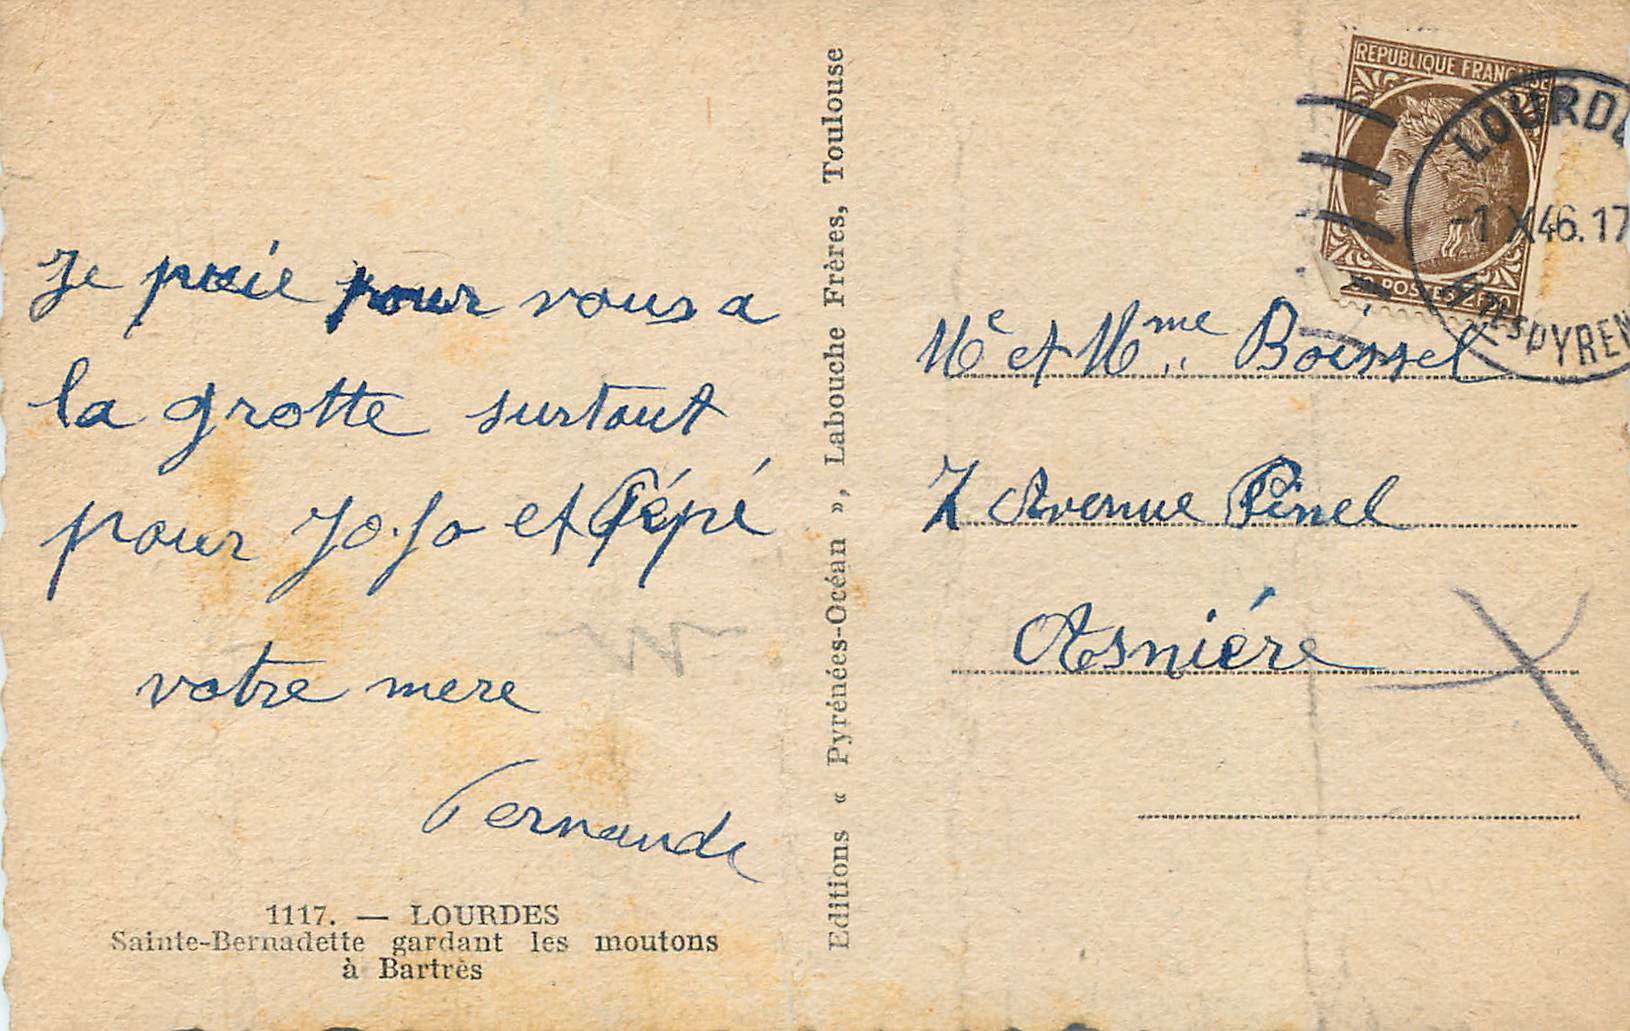 Je prie pour vous a
la grotte surtout
pour Jo.Jo et Pépé
votre mere
Fernande
1117. — LOURDES
Sainte-Bernadette gardant les moutons
à Bartrès
Editions « Pyrénées-Océan », Labouche Frères, Toulouse
REPUBLIQUE FRANÇAISE
POSTES 2F50
LOURDE
-1 X 46.17
HTES PYREN
Mr et Mme Boissel
7 Avenue Pinel
Asniére